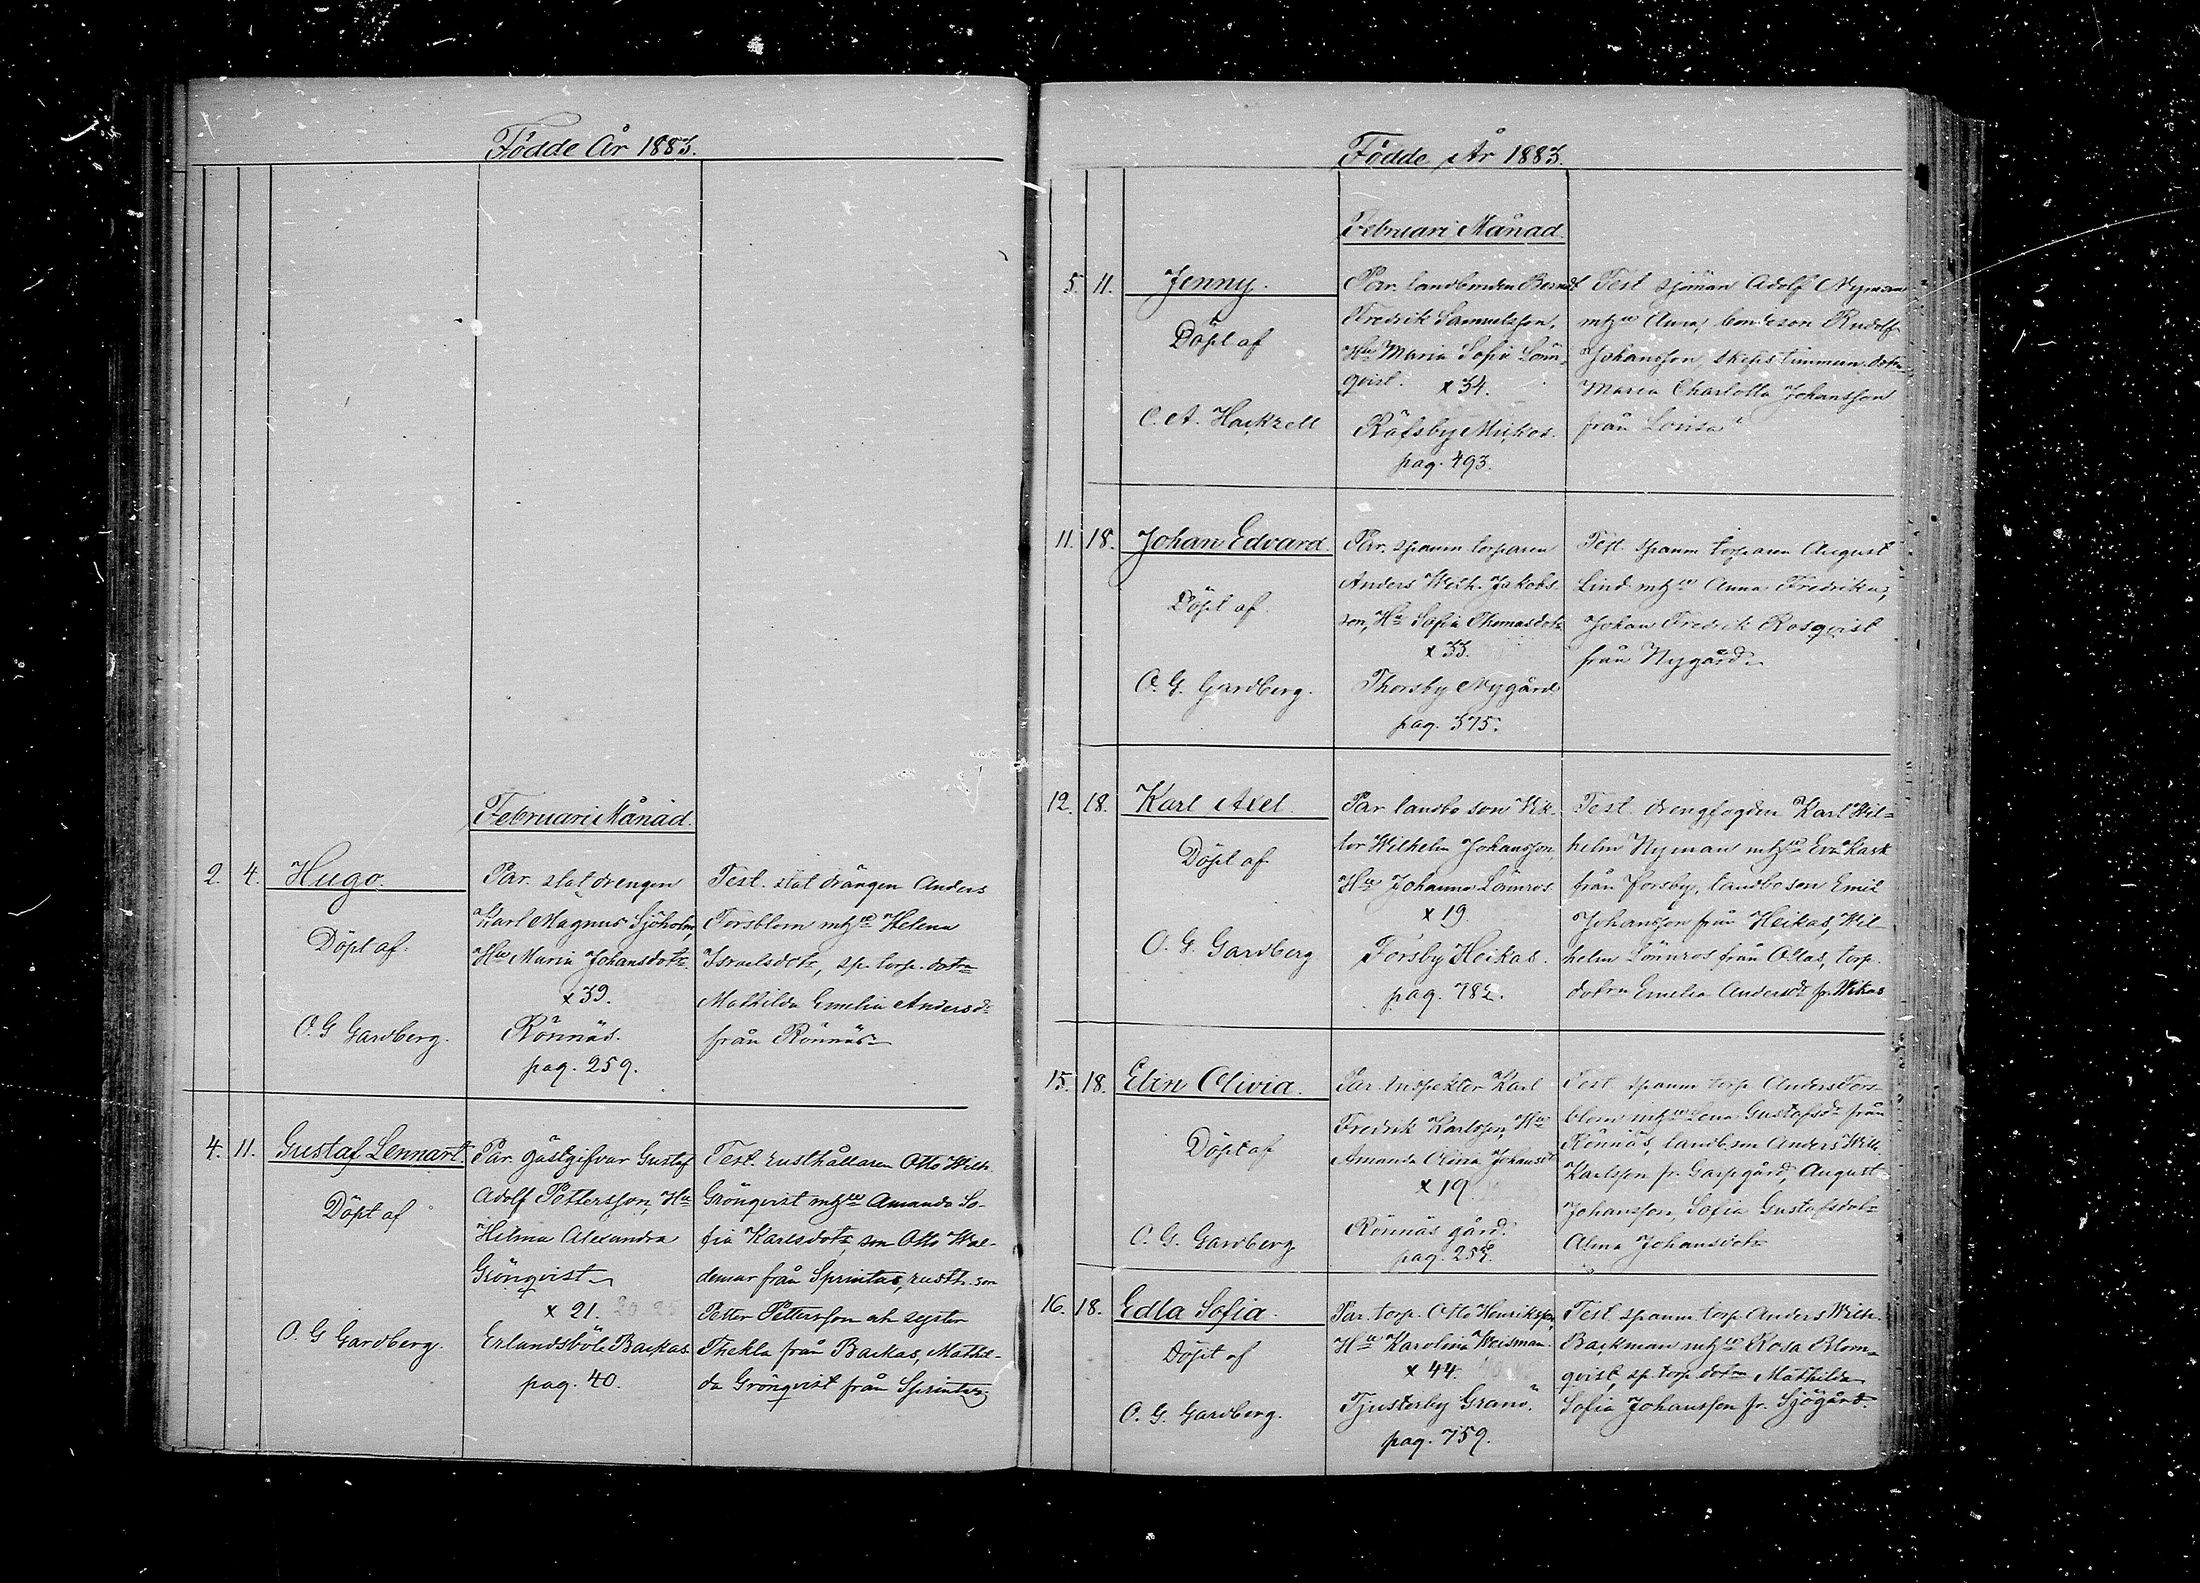 Födde År 1883.
Februari Månad.
2. 4. Hugo.
Döpt af
O. G Gardberg.
Par. stat drengen
Karl Magnus Sjöholm,
Hu Maria Johansdotr
x 39.
Rönnäs.
pag. 259.
Test. stat drängen Anders
Forsblom mhu Helena
Israelsdotr, sp. torp. dotrn
Mathilda Emelia Andersdr
från Rönnäs
4. 11. Gustaf Lennart.
Döpt af
O. G Gardberg.
Par. gästgifvar Gustaf
Adolf Pettersson, Hu
Hilma Alexandra
Grönqvist
x 21.
Erlandsböle Backas.
pag. 40.
Test. rusthållaren Otto Wilh.
Grönqvist mhu Amanda So-
fia Karlsdotr, son Otto Wal-
demar från Sprintas, rusth. son
Petter Pettersson och syster
Thekla från Backas, Mathil-
da Grönqvist från Sprintas.
Födde År 1883.
Februari Månad.
5. 11. Jenny.
Döpt af
C. A. Hackzell
Par. landbonden Berndt
Fredrik Samuelsson,
Hu Maria Sofia Lönn-
qvist. x 34.
Räfsby Mickos.
pag. 493.
Test. sjöman Adolf Nyman
mhu Anna, bondeson Rudolf
Johansson, skepstimmerm. dotrn
Maria Charlotta Johansson
från Lovisa
11. 18. Johan Edvard.
Döpt af.
O. G. Gardberg.
Par. spanm torparen
Anders Wilh. Jakobs-
son, Hu Sofia Thomasdotr
x 33.
Thorsby Nygård
pag. 375.
Test. spanm torparen August
Lind mhu Anna Fredrika,
Johan Fredrik Rosqvist
från Nygård
12. 18. Karl Axel.
Döpt af
O. G. Gardberg
Par. landbo son Vik-
tor Wilhelm Johansson,
Hu Johanna Lönnros.
x 19.
Forsby Heikas.
pag. 782.
Test. drengfogden Karl Wil-
helm Nyman mhu Eva Kark
från Forsby, landbo son Emil
Johansson från Heikas, Wil-
helm Lönnros från Ollas, torp.
dotrn Emelia Andersdr fr. Wikas
15. 18. Elin Olivia.
Döpt af
O. G. Gardberg
Par. Inspektor Karl
Fredrik Karlsson, Hu
Amanda Olivia Johansdr
x 19.
Rönnäs gård.
pag. 255.
Test. spanm torp. Anders Fors-
blom mhu Lena Gustafsdr från
Rönnäs, landb. son Anders Wilh.
Karlsson fr. Garpgård, August
Johansson, Sofia Gustafsdotr
Alma Johansdotr
16. 18. Edla Sofia.
Döpt af
O. G. Gardberg.
Par. torp. Otto Henriksson,
Hu Karolina Weisman.
x 44.
Tjusterby Granö.
pag. 759.
Test. spanm torp Anders Wilh.
Backman mhu Rosa Blom-
qvist, sp. torp. dotrn Mathilda
Sofia Johansson fr. Sjögård.